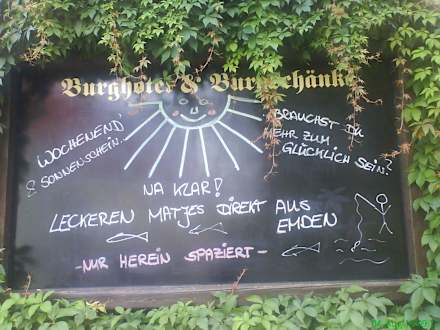 Burghotel & Burgschänke
WOCHENEND'
& SONNENSCHEIN...
BRAUCHST DU
MEHR ZUM
GLÜCKLICH SEIN?
NA KLAR!
LECKEREN MATJES DIREKT AUS
EMDEN
-NUR HEREIN SPAZIERT-